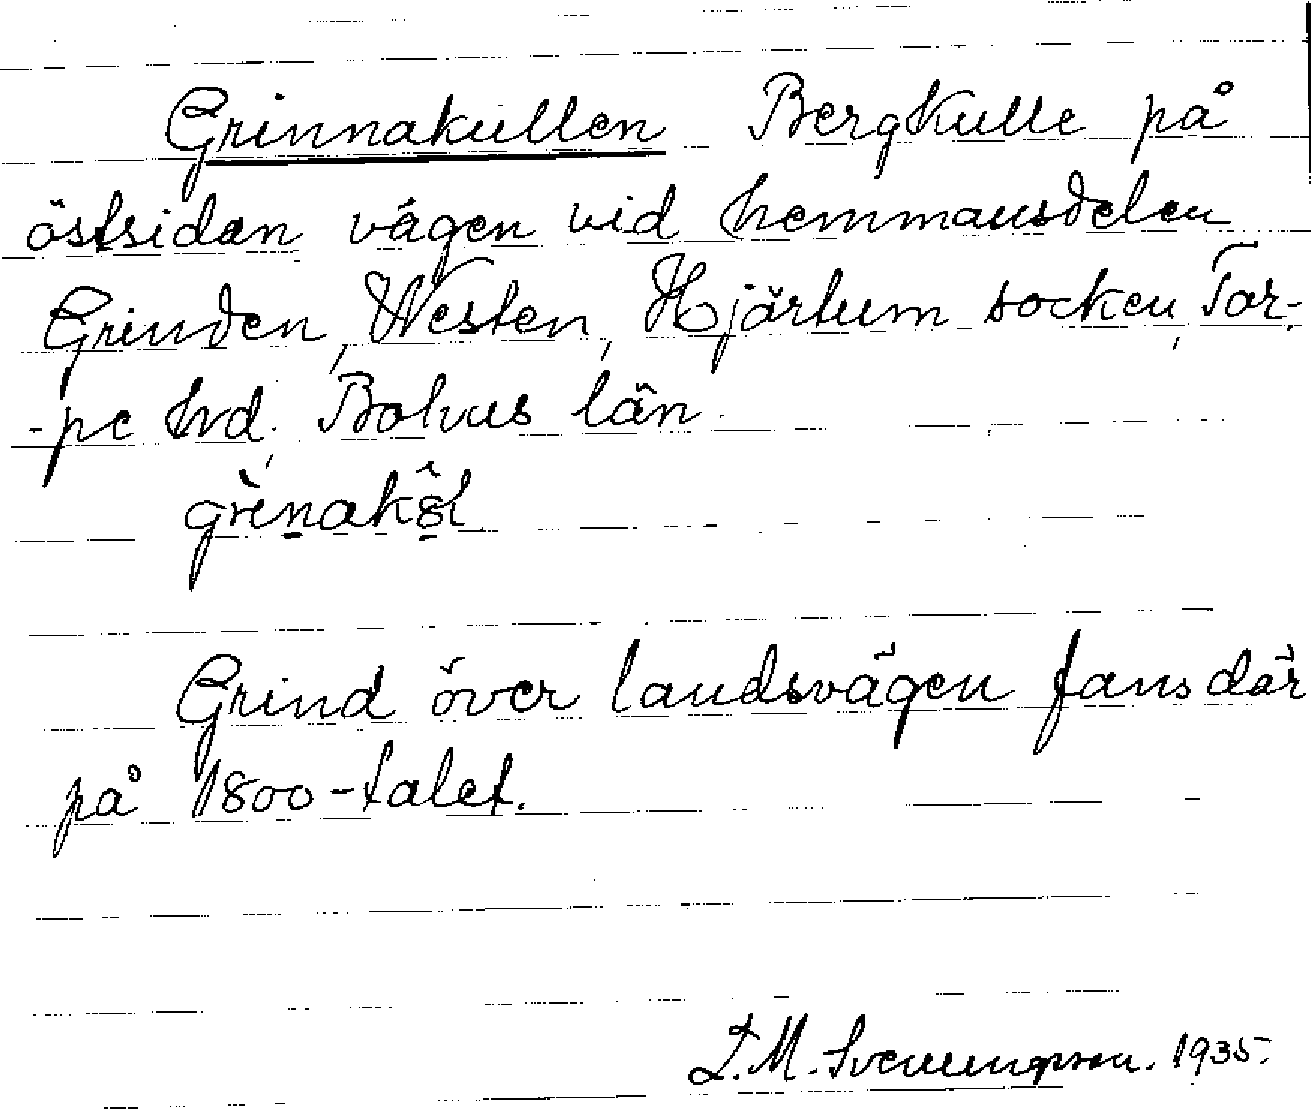 Grinnakullen Bergkulle på
östsidan vägen vid hemmansdelen
Grinden, Westen, Hjärtum socken, Tor-
-pe hd, Bohus län.
grènakö̂l
Grind över landsvägen fans där
på 1800-talet.
L.M. Svenungsson. 1935.